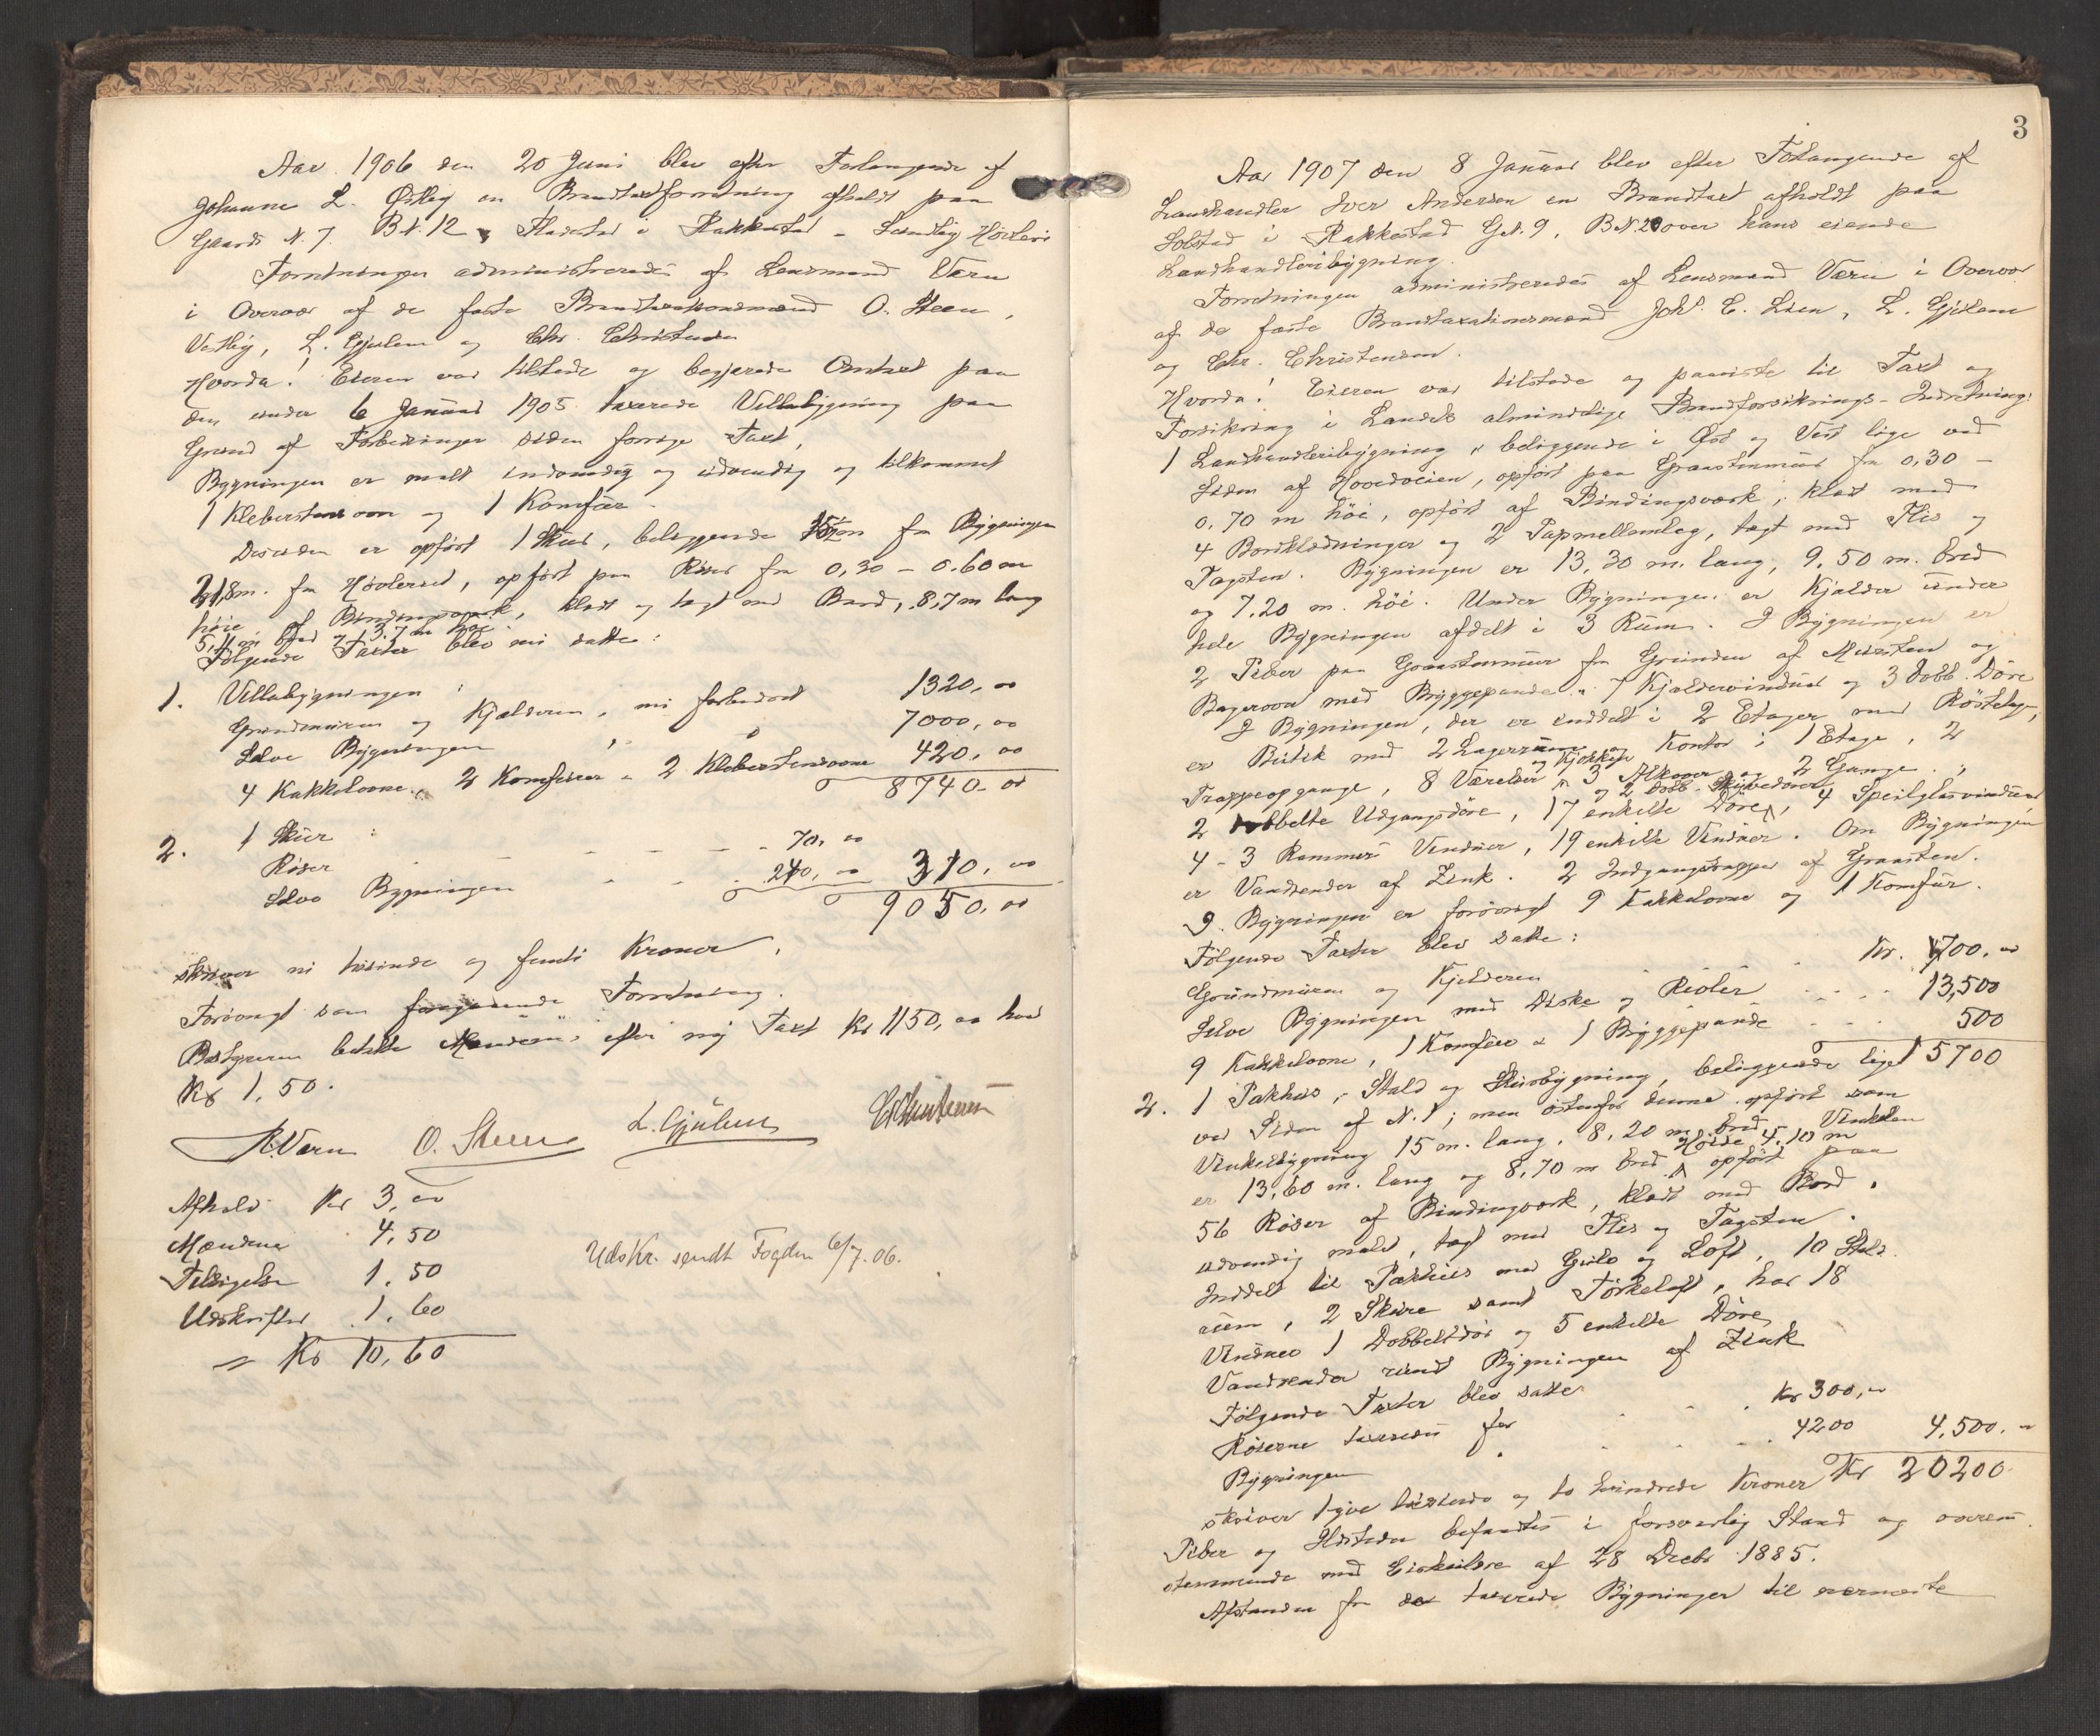 Aar 1906 den 20 Juni blev efter Forlangende af
Johanne L. Østby en Brandtaxtforretning afholdt paa
Gaards N. 7. B.N. 12 i Rakkestad - Sundby Høvleri
Forretningen administreredes af Lensmand Værn
i Overvær af de faste Brandtaxtionsmænd O. Steen,
Vestby, L. Gjulem og Chr. Christensen
Hvorda! Eieren var tilstede og begjærede Omtaxt paa
den under 6 Januar 1905 taxerede Villabygning paa
Grund af Forbedringer siden forrige Taxt,
Bygningen er malt indvendig og udvendig og tilkommet
1 Kleberstensovn og 1 Komfur.
Desuden er opført 1 Skur, beliggende fra Bygningen
fra Høvleriet, opført paa Røser fra 0,30 – 0.60 m
høie af Bindingsværk, klædt og tagt med Bord, 8,7 m lang
5,4 m bred og 3.7 m høi.
Følgende Taxter blev nu satte:
1. Villabygningen:
Grundmuren og Kjælderen, nu forbedret 1320,00
Selve Bygningen " " 7000,00
4 Kakkelovne, 2 Komfurer & 2 Kleberstensovne 420,00
8740,00
2. 1 Skur:
Røser - - - - 70,00
Selve Bygningen - - - 240,00 310,00
9050,00
skriver ni tusinde og femti Kroner.
Forøvrigt som foregaaende Forretning.
Bestyreren betalte Mændene efter ny Taxt Kr 1150,00 hver
Kr 1,50.
R. Værn O. Steen L. Gjulem Chr Christensen
Afhold Kr 3,00
Mændene 4,50
Tilsigelse 1.50
Udskrifter 1.60
= Kr 10,60
Udskr. sendt Fogden 6/7.06.
3
Aar 1907 den 8 Januar blev efter Forlangende af
Landhandler Iver Andersen en Brandtaxt afholdt paa
Solstad i Rakkestad G.N. 9, B.N. 20 over hans eiende
Landhandleribygning.
Forretningen administreredes af Lensmand Værn i Overvær
af de faste Brandtaxationsmænd Johs. E. Lien, L. Gjulem
og Chr. Christensen.
Hvorda! Eieren var tilstede og paaviste til Taxt og
Forsikring i Landets almindelige Brandforsikrings-Indretning:
1 Landhandleribygning, beliggende i Øst og Vest lige ved
Siden af Hovedveien, opført paa Graastensmur fra 0,30 –
0,70 m høi, opført af Bindingsværk, klædt med
4 Bordklædninger og 2 Papmellemlæg, tagt med Flis og
Tagsten. Bygningen er 13,30 m. lang, 9,50 m. bred
og 7,20 m. høi. Under Bygningen er Kjælder under
hele Bygningen afdelt i 3 Rum. I Bygningen er
2 Piber paa Graastensmur fra Grunden af Mursten og
Bagerovn med Bryggepande. 7 Kjældervinduer og 3 dobb. Døre
I Bygningen, der er inddelt i 2 Etager med Røstelag,
er Butik med 2 Lagerrum og Kontor i 1 Etage, 2
Trappeopgange, 8 Værelser og Kjøkken 3 Alkover og 2 Gange.
2 dobbelte Udgangsdøre, 17 enkelte Døre og 2 dobb. Skyvedøre, 4 Speilglasvinduer
4 – 3 Rammers Vinduer, 19 enkelte Vinduer. Om Bygningen
er Vandrender af Zink. 2 Indgangstrapper af Graasten.
I Bygningen er forøvrigt 9 Kakkelovne og 1 Komfur.
Følgende Taxter blev satte:
Grundmuren og Kjelderen Kr. 1700,00
Selve Bygningen med Diske og Reoler 13,500
9 Kakkelovne, 1 Komfur & 1 Bryggepande 500
15700
2. 1 Pakhus, Stald og Skursbygning, beliggende lige
ved Siden af N. 1, men østenfor denne opført som
Vinkelbygning 15 m. lang, 8,20 m bred. Vinkelen
er 13,60 m. lang og 8,70 m bred. Høide 4,10 m opført paa
56 Røser af Bindingværk, klædt med Bord,
udvendig malet, tagt med Flis og Tagsten.
Inddelt til Pakhus med Gulv og Loft, 10 Stald
rum, 2 Skure samt Tørkeloft, har 18
Vinduer 1 Dobbeltdør og 5 enkelte Døre
Vandrender rundt Bygningen af Zink
Følgende Taxter blev satte
Røserne taxeredes for Kr 300,00
Bygningen 4200 4,500.00
skriver tyve tusinde og to hundrede Kroner Kr 20200
Piber og Ildsteder befandtes i forsvarlig Stand og overens
stemmende med Cirkulære af 28 Decbr 1885.
Afstanden fra de taxerede Bygninger til nærmeste